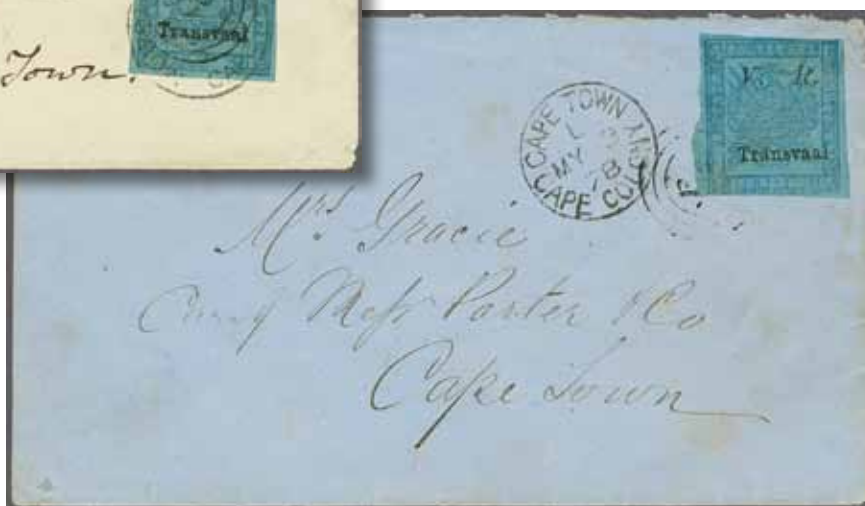 Transvaal
Town.
V. R.
Transvaal
CAPE TOWN
MY
78
CAPE COLONY
Mrs. Gracie
Care of Messrs Porter & Co
Cape Town